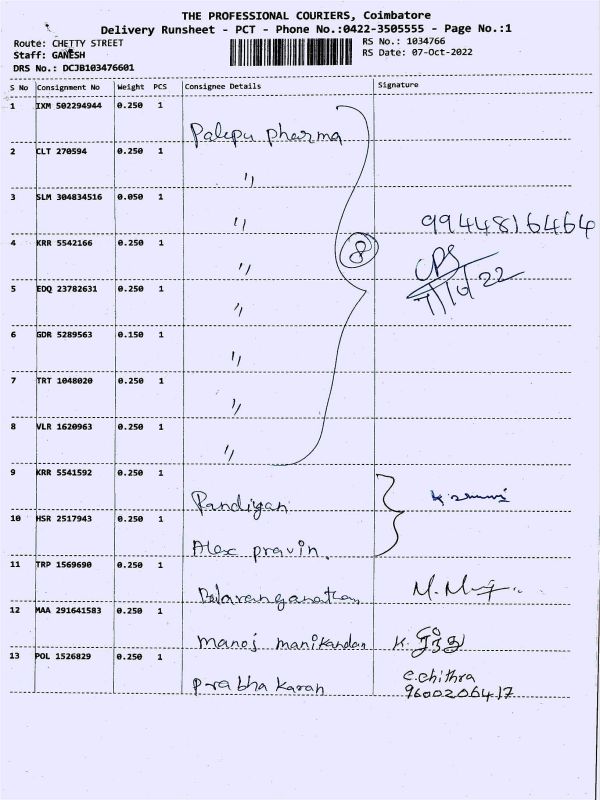 THE PROFESSIONAL COURIERS, Coimbatore
Delivery Runsheet - PCT - Phone No.:0422-3505555 - Page No.:1
Route: CHETTY STREET
RS No.: 1034766
Staff: GANESH
RS Date: 07-Oct-2022
DRS No.: DCJB103476601
S No Consignment No Weight PCS Consignee Details Signature
1 IXM 502294944 0.250 1
Palepu pharma
2 CLT 270594 0.250 1
〃
3 SLM 304834516 0.050 1
〃 9944816464
4 KRR 5542166 0.250 1
〃 8
5 EDQ 23782631 0.250 1
〃 7/10/22
6 GDR 5289563 0.150 1
〃
7 TRT 1048020 0.250 1
〃
8 VLR 1620963 0.250 1
〃
9 KRR 5541592 0.250 1
Pandiyan
10 HSR 2517943 0.250 1
Alex pravin.
11 TRP 1569690 0.250 1
Balaranganathan
12 MAA 291641583 0.250 1
manoj manikandan K. இந்து
13 POL 1526829 0.250 1
prabha karan c.chithra
9600206417